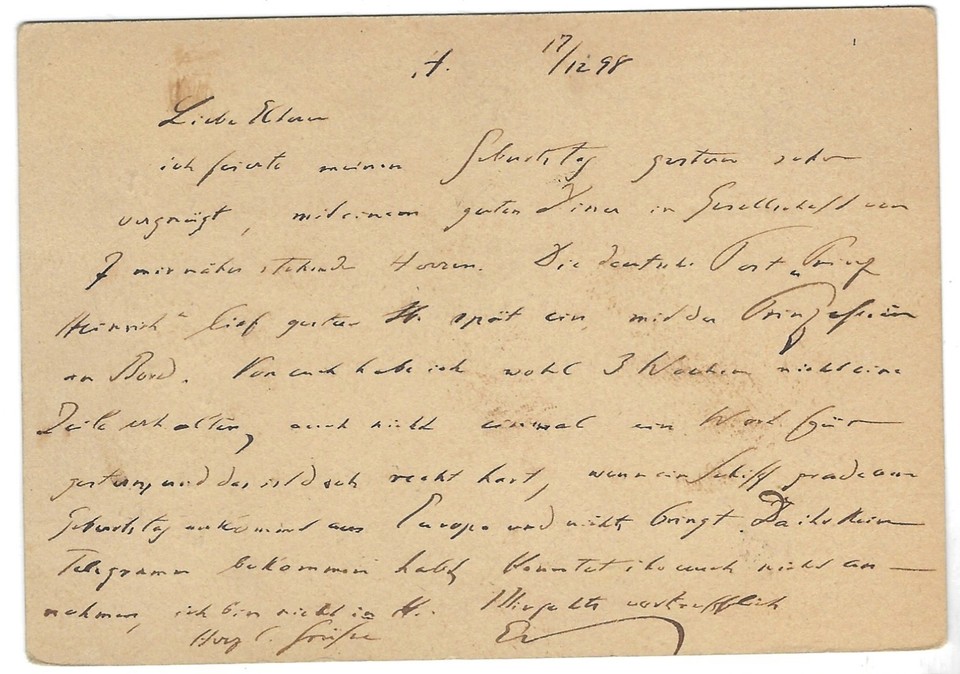 H. 17/12 98
Liebe Eltern
ich feierte meinen Geburtstag gestern sehr
vergnügt, mit einem guten Diner in Gesellschaft von
7 mir näher stehende Herren. Die deutsche Post „Prinz
Heinrich“ lief gestern spät ein, mit der Prinzessin
an Bord. Von euch habe ich wohl 3 Wochen nicht eine
Zeile erhalten, auch nicht einmal ein Wort für
gestern, und das ist doch recht hart, wenn ein Schiff grade am
Geburtstag ankommt aus Europa und nichts bringt. Da ihr kein
Telegramm bekommen habt, konntet ihr auch nicht an-
nehmen, ich bin nicht in H. Mir geht's vortrefflich
Herzl. Grüße